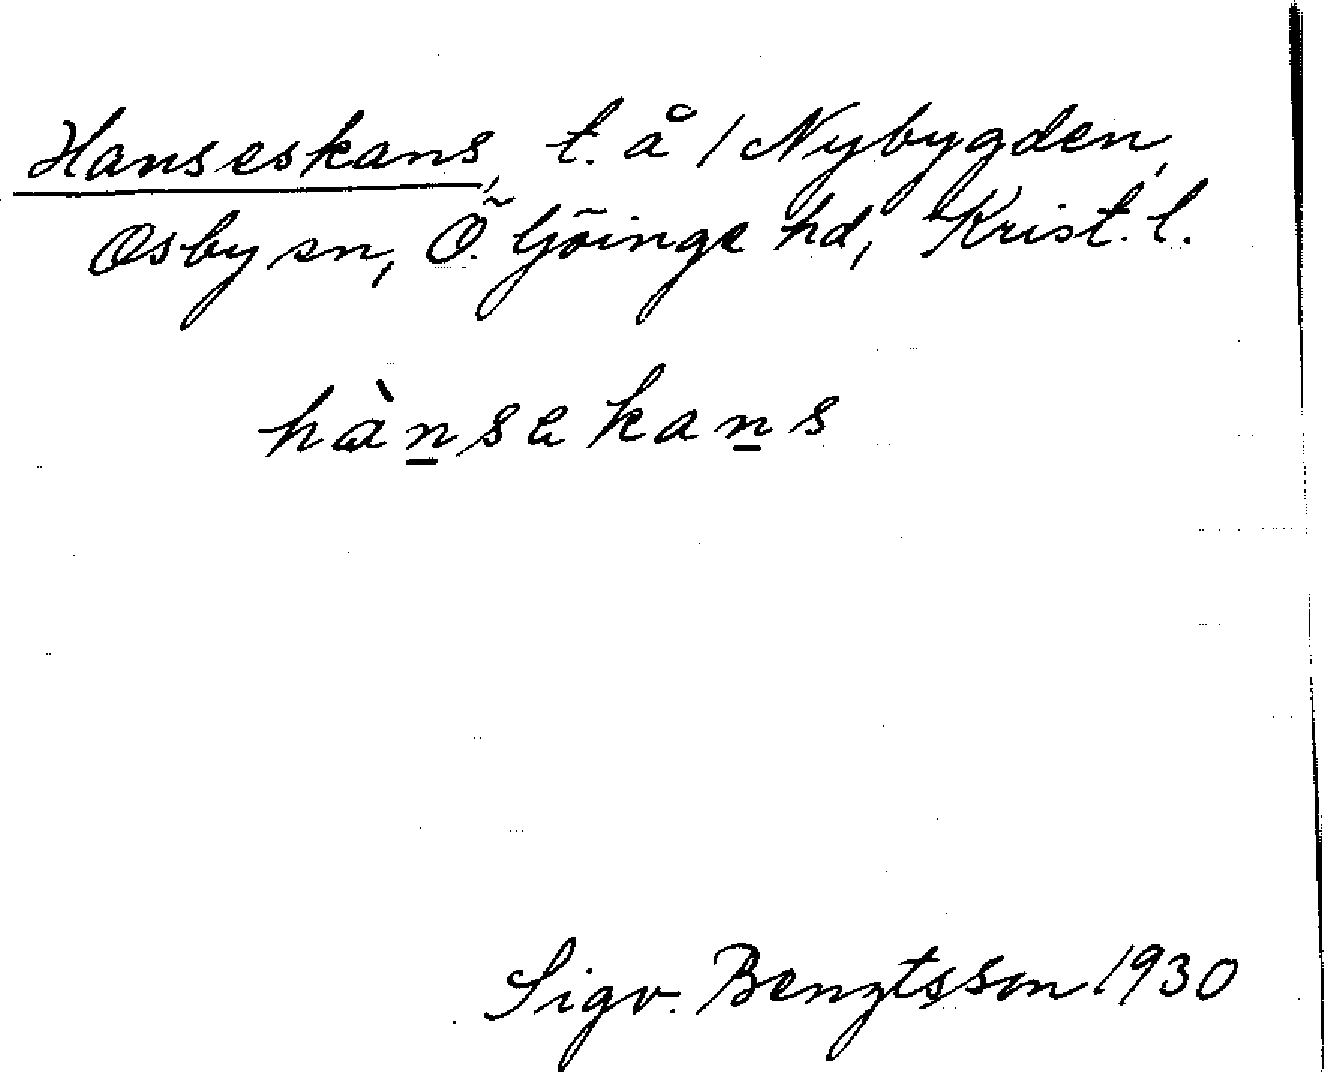 Hanseskans, t. å / Nybygden,
Osby sn, Ö. Göinge hd, Krist. l.
hànsekans
Sigv. Bengtsson 1930